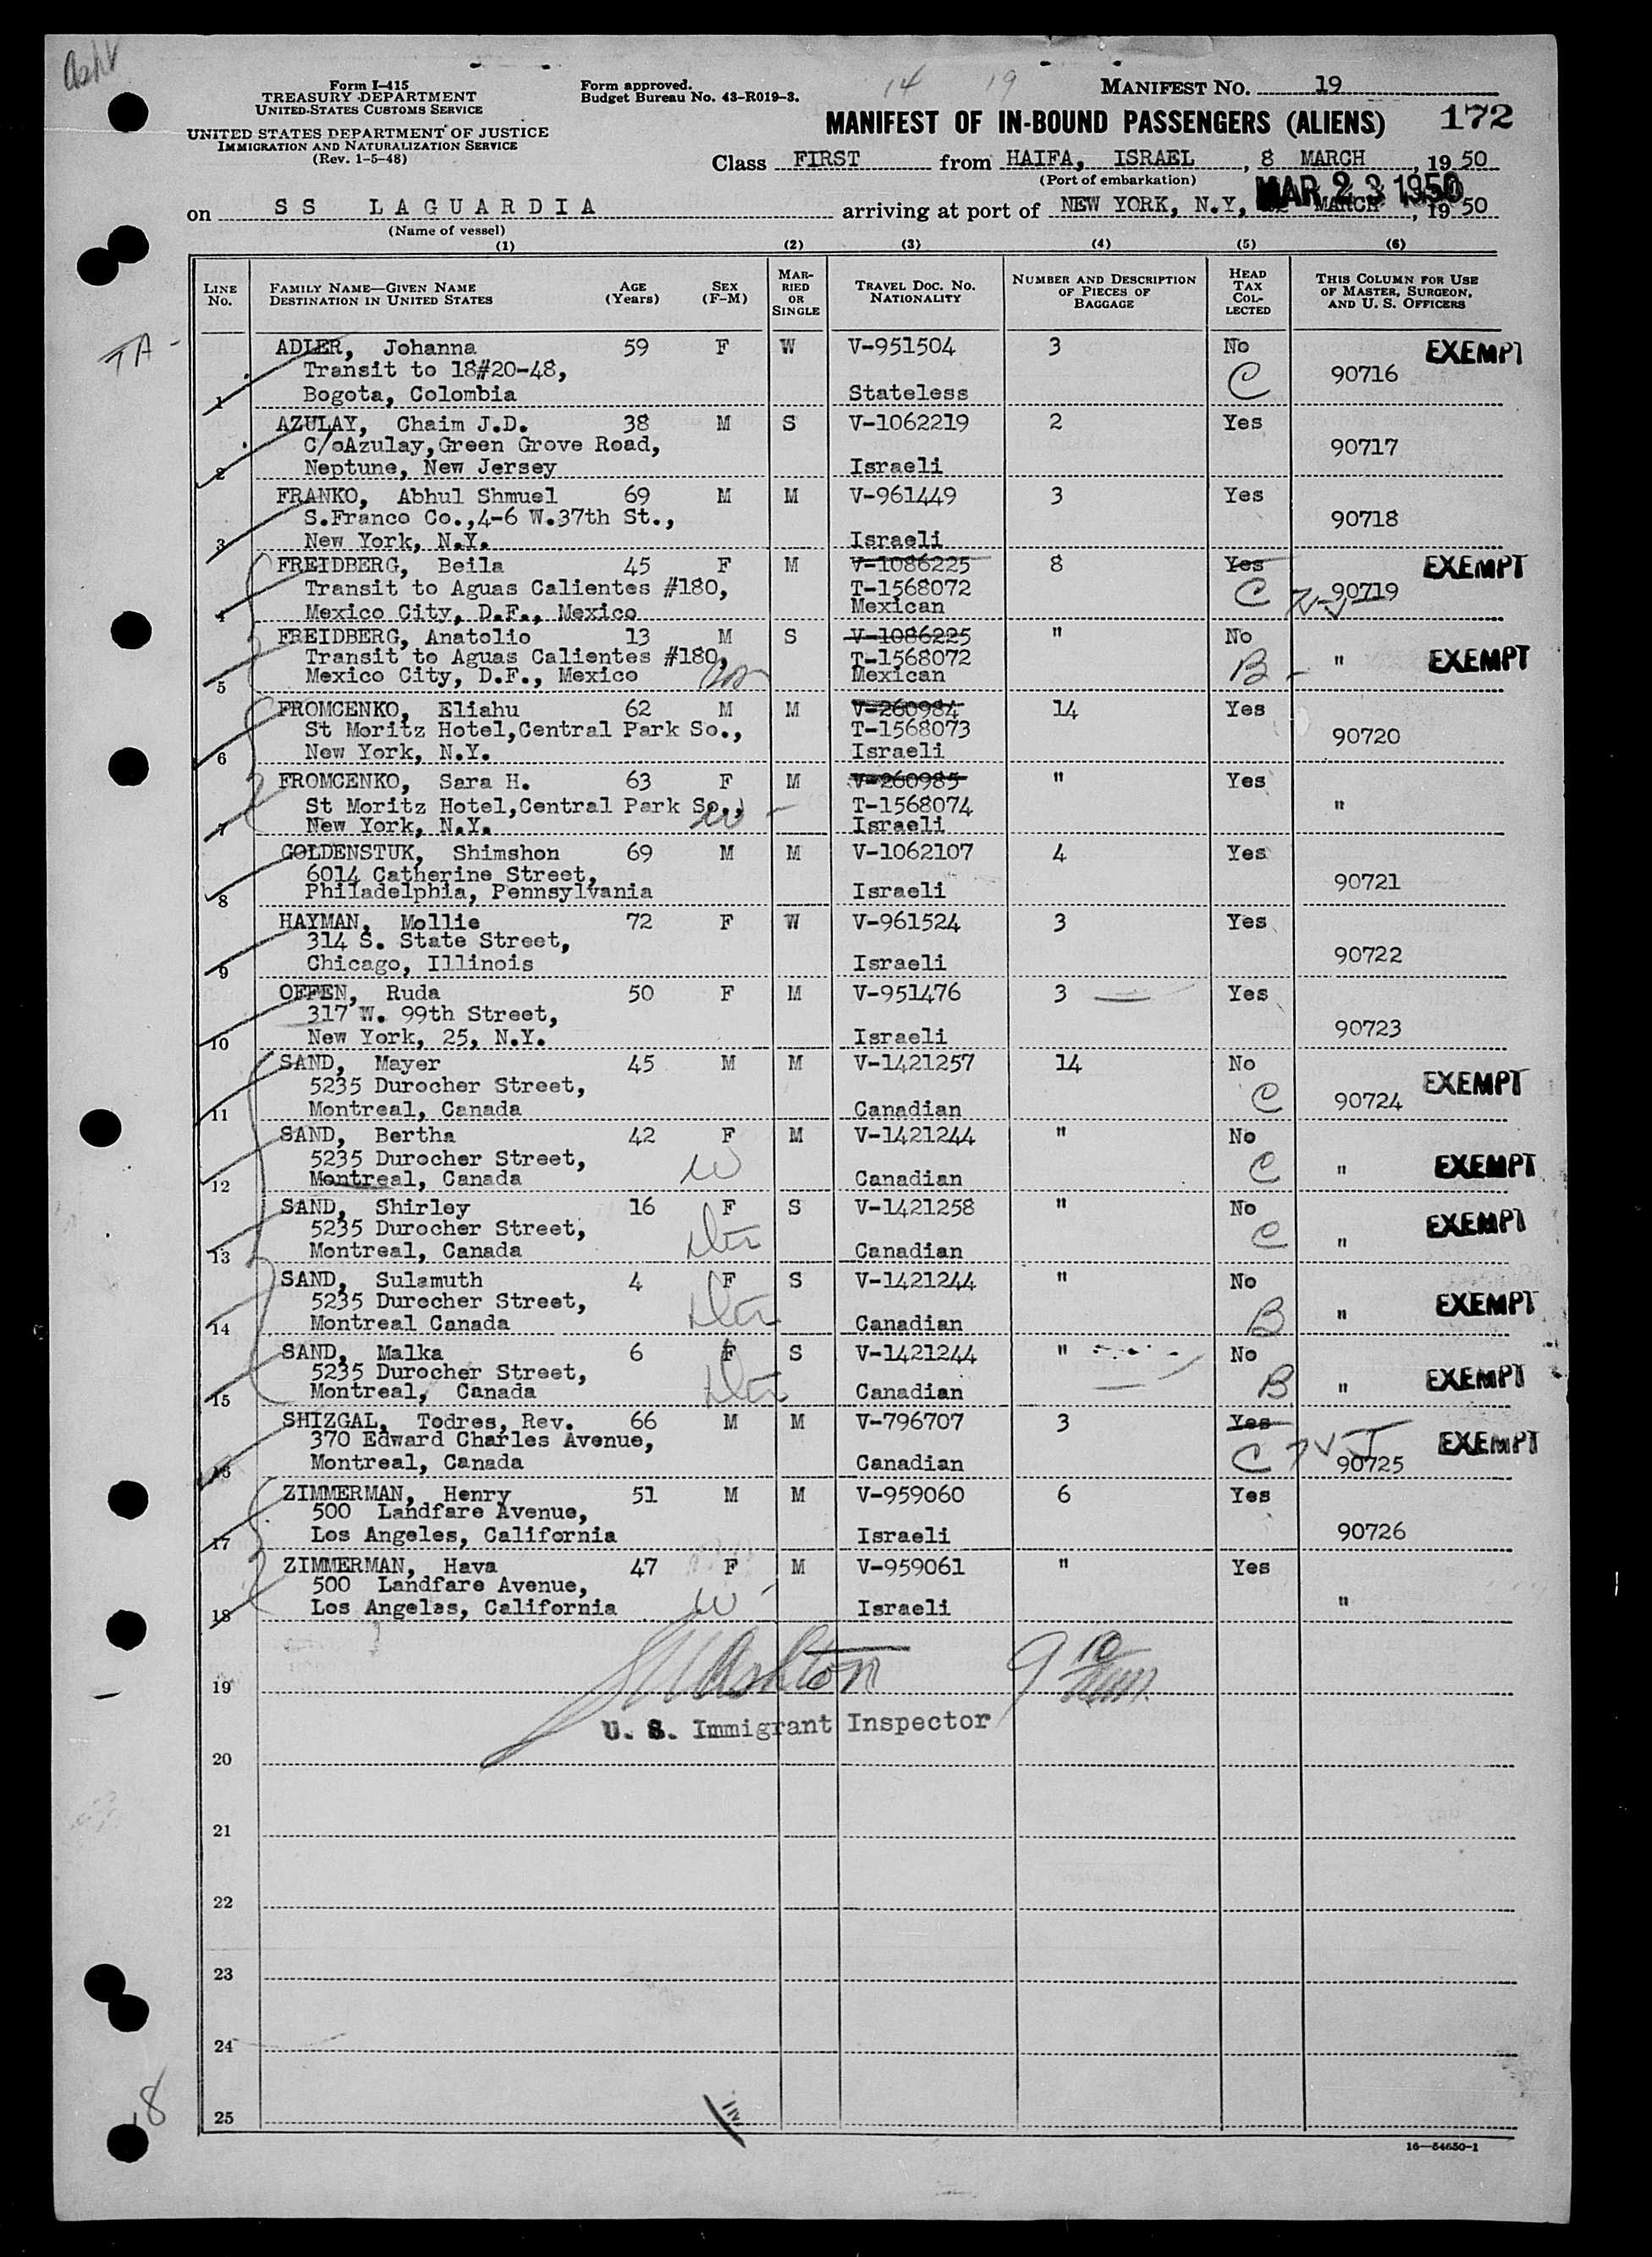 Ash
Form I-415
TREASURY DEPARTMENT
UNITED STATES CUSTOMS SERVICE
UNITED STATES DEPARTMENT OF JUSTICE
IMMIGRATION AND NATURALIZATION SERVICE
(Rev. 1-5-48)
Form approved.
Budget Bureau No. 43-R019-3.
14 19
MANIFEST NO. 19
MANIFEST OF IN-BOUND PASSENGERS (ALIENS) 172
Class FIRST from HAIFA, ISRAEL, 8 MARCH, 1950
(Port of embarkation)
MAR 23 1950
on SS LAGUARDIA arriving at port of NEW YORK, N.Y, MARCH, 1950
(Name of vessel)
(1) (2) (3) (4) (5) (6)
LINE NO. FAMILY NAME—GIVEN NAME DESTINATION IN UNITED STATES AGE (Years) SEX (F-M) MARRIED OR SINGLE TRAVEL DOC. NO. NATIONALITY NUMBER AND DESCRIPTION OF PIECES OF BAGGAGE HEAD TAX COLLECTED THIS COLUMN FOR USE OF MASTER, SURGEON, AND U. S. OFFICERS
TA -
ADLER, Johanna 59 F W V-951504 3 No EXEMPT
Transit to 18#20-48, C 90716
1 Bogota, Colombia Stateless
AZULAY, Chaim J.D. 38 M S V-1062219 2 Yes
C/oAzulay,Green Grove Road, 90717
2 Neptune, New Jersey Israeli
FRANKO, Abhul Shmuel 69 M M V-961449 3 Yes
S.Franco Co.,4-6 W.37th St., 90718
3 New York, N.Y. Israeli
FREIDBERG, Beila 45 F M V-1086225 8 Yes EXEMPT
Transit to Aguas Calientes #180, T-1568072 C 90719
4 Mexico City, D.F., Mexico Mexican
FREIDBERG, Anatolio 13 M S V-1086225 " No
Transit to Aguas Calientes #180, T-1568072 B - " EXEMPT
5 Mexico City, D.F., Mexico Mexican
FROMCENKO, Eliahu 62 M M V-260984 14 Yes
St Moritz Hotel,Central Park So., T-1568073 90720
6 New York, N.Y. Israeli
FROMCENKO, Sara H. 63 F M V-260985 " Yes
St Moritz Hotel,Central Park So., w - T-1568074 "
7 New York, N.Y. Israeli
GOLDENSTUK, Shimshon 69 M M V-1062107 4 Yes
6014 Catherine Street, 90721
8 Philadelphia, Pennsylvania Israeli
HAYMAN, Mollie 72 F W V-961524 3 Yes
314 S. State Street, 90722
9 Chicago, Illinois Israeli
OFFEN, Ruda 50 F M V-951476 3 Yes
317 W. 99th Street, 90723
10 New York, 25, N.Y. Israeli
SAND, Mayer 45 M M V-1421257 14 No EXEMPT
5235 Durocher Street, C 90724
11 Montreal, Canada Canadian
SAND, Bertha 42 F M V-1421244 " No
5235 Durocher Street, w C " EXEMPT
12 Montreal, Canada Canadian
SAND, Shirley 16 F S V-1421258 " No EXEMPT
5235 Durocher Street, C "
13 Montreal, Canada Canadian
SAND, Sulamuth 4 F S V-1421244 " No EXEMPT
5235 Durocher Street, B "
14 Montreal Canada Canadian
SAND, Malka 6 F S V-1421244 " No
5235 Durocher Street, B " EXEMPT
15 Montreal, Canada Canadian
SHIZGAL, Todres, Rev. 66 M M V-796707 3 Yes EXEMPT
370 Edward Charles Avenue, C
16 Montreal, Canada Canadian 90725
ZIMMERMAN, Henry 51 M M V-959060 6 Yes
500 Landfare Avenue, 90726
17 Los Angeles, California Israeli
ZIMMERMAN, Hava 47 F M V-959061 " Yes
500 Landfare Avenue, w "
18 Los Angelas, California Israeli
Ashton
19
U. S. Immigrant Inspector
20
21
22
23
24
25
18
16—54650-1